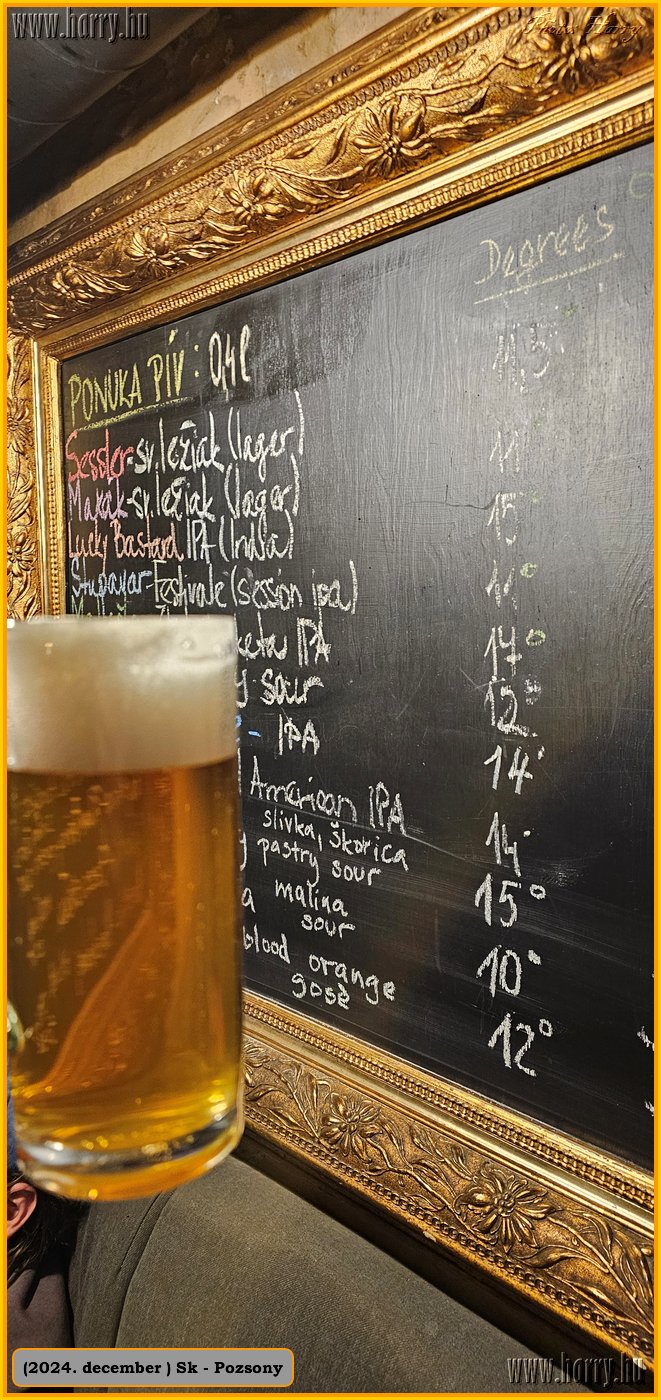 www.harry.hu
Photo: Harry
Degrees
PONUKA PÍV: 0,4l
11,5°
Sessler-sv.ležiak (lager)
11°
Makak-sv.ležiak (lager)
15°
Lucky Bastard IPA (India)
11°
Stupavar-Festivale (session ipa)
17°
IPA
12°
sour
14°
- IPA
14°
American IPA
slivka, škorica
15°
pastry sour
malina
10°
sour
blood orange
gosè
12°
(2024. december ) Sk - Pozsony
www.harry.hu